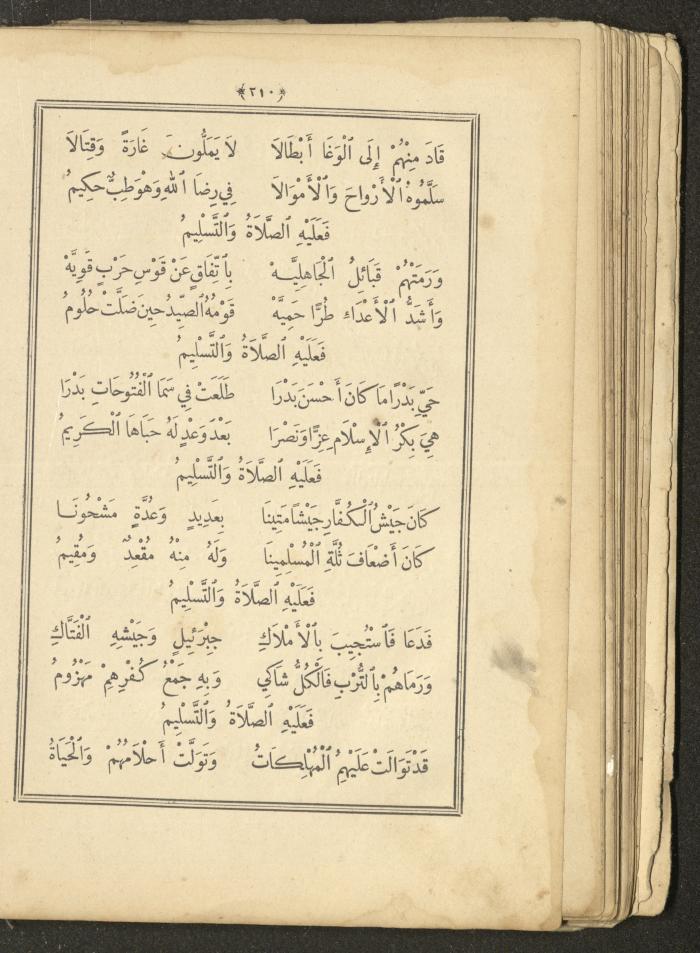 ﴿٢١٠﴾
قَادَ مِنْهُمْ إِلَى ٱلْوَغَا أَبْطَالَا لَا يَمَلُّونَ غَارَةً وَقِتَالَا
سَلَّمُوهُ ٱلْأَرْوَاحَ وَٱلْأَمْوَالَا فِي رِضَا ٱللهِ وَهْوَ طِبٌّ حَكِيمُ
فَعَلَيْهِ ٱلصَّلَاةُ وَٱلتَّسْلِيمُ
وَرَمَتْهُمْ قَبَائِلُ ٱلْجَاهِلِيَّهْ بِٱتِّفَاقٍ عَنْ قَوْسِ حَرْبٍ قَوِيَّهْ
وَأَشَدُّ ٱلْأَعْدَاءِ طُرًّا حَمِيَّهْ قَوْمُهُ ٱلصِّيْدُ حِينَ ضَلَّتْ حُلُومُ
فَعَلَيْهِ ٱلصَّلَاةُ وَٱلتَّسْلِيمُ
حَيِّ بَدْرًا مَا كَانَ أَحْسَنَ بَدْرَا طَلَعَتْ فِي سَمَا ٱلْفُتُوحَاتِ بَدْرَا
هِيَ بِكْرُ ٱلْإِسْلَامِ عِزًّا وَنَصْرَا بَعْدَ وَعْدٍ لَهُ حَبَاهَا ٱلْكَرِيمُ
فَعَلَيْهِ ٱلصَّلَاةُ وَٱلتَّسْلِيمُ
كَانَ جَيْشُ ٱلْكُفَّارِ جَيْشًا مَتِينَا بِعَدِيدٍ وَعُدَّةٍ مَشْحُونَا
كَانَ أَضْعَافَ ثُلَّةِ ٱلْمُسْلِمِينَا وَلَهُ مِنْهُ مُقْعِدٌ وَمُقِيمُ
فَعَلَيْهِ ٱلصَّلَاةُ وَٱلتَّسْلِيمُ
فَدَعَا فَٱسْتُجِيبَ بِٱلْأَمْلَاكِ جِبْرَئِيلٍ وَجَيْشِهِ ٱلْفَتَّاكِ
وَرَمَاهُمْ بِٱلتُّرْبِ فَٱلْكُلُّ شَاكِي وَبِهِ جَمْعُ كُفْرِهِمْ مَهْزُومُ
فَعَلَيْهِ ٱلصَّلَاةُ وَٱلتَّسْلِيمُ
قَدْ تَوَالَتْ عَلَيْهِمُ ٱلْمُهْلِكَاتُ وَتَوَلَّتْ أَحْلَامُهُمْ وَٱلْحَيَاةُ